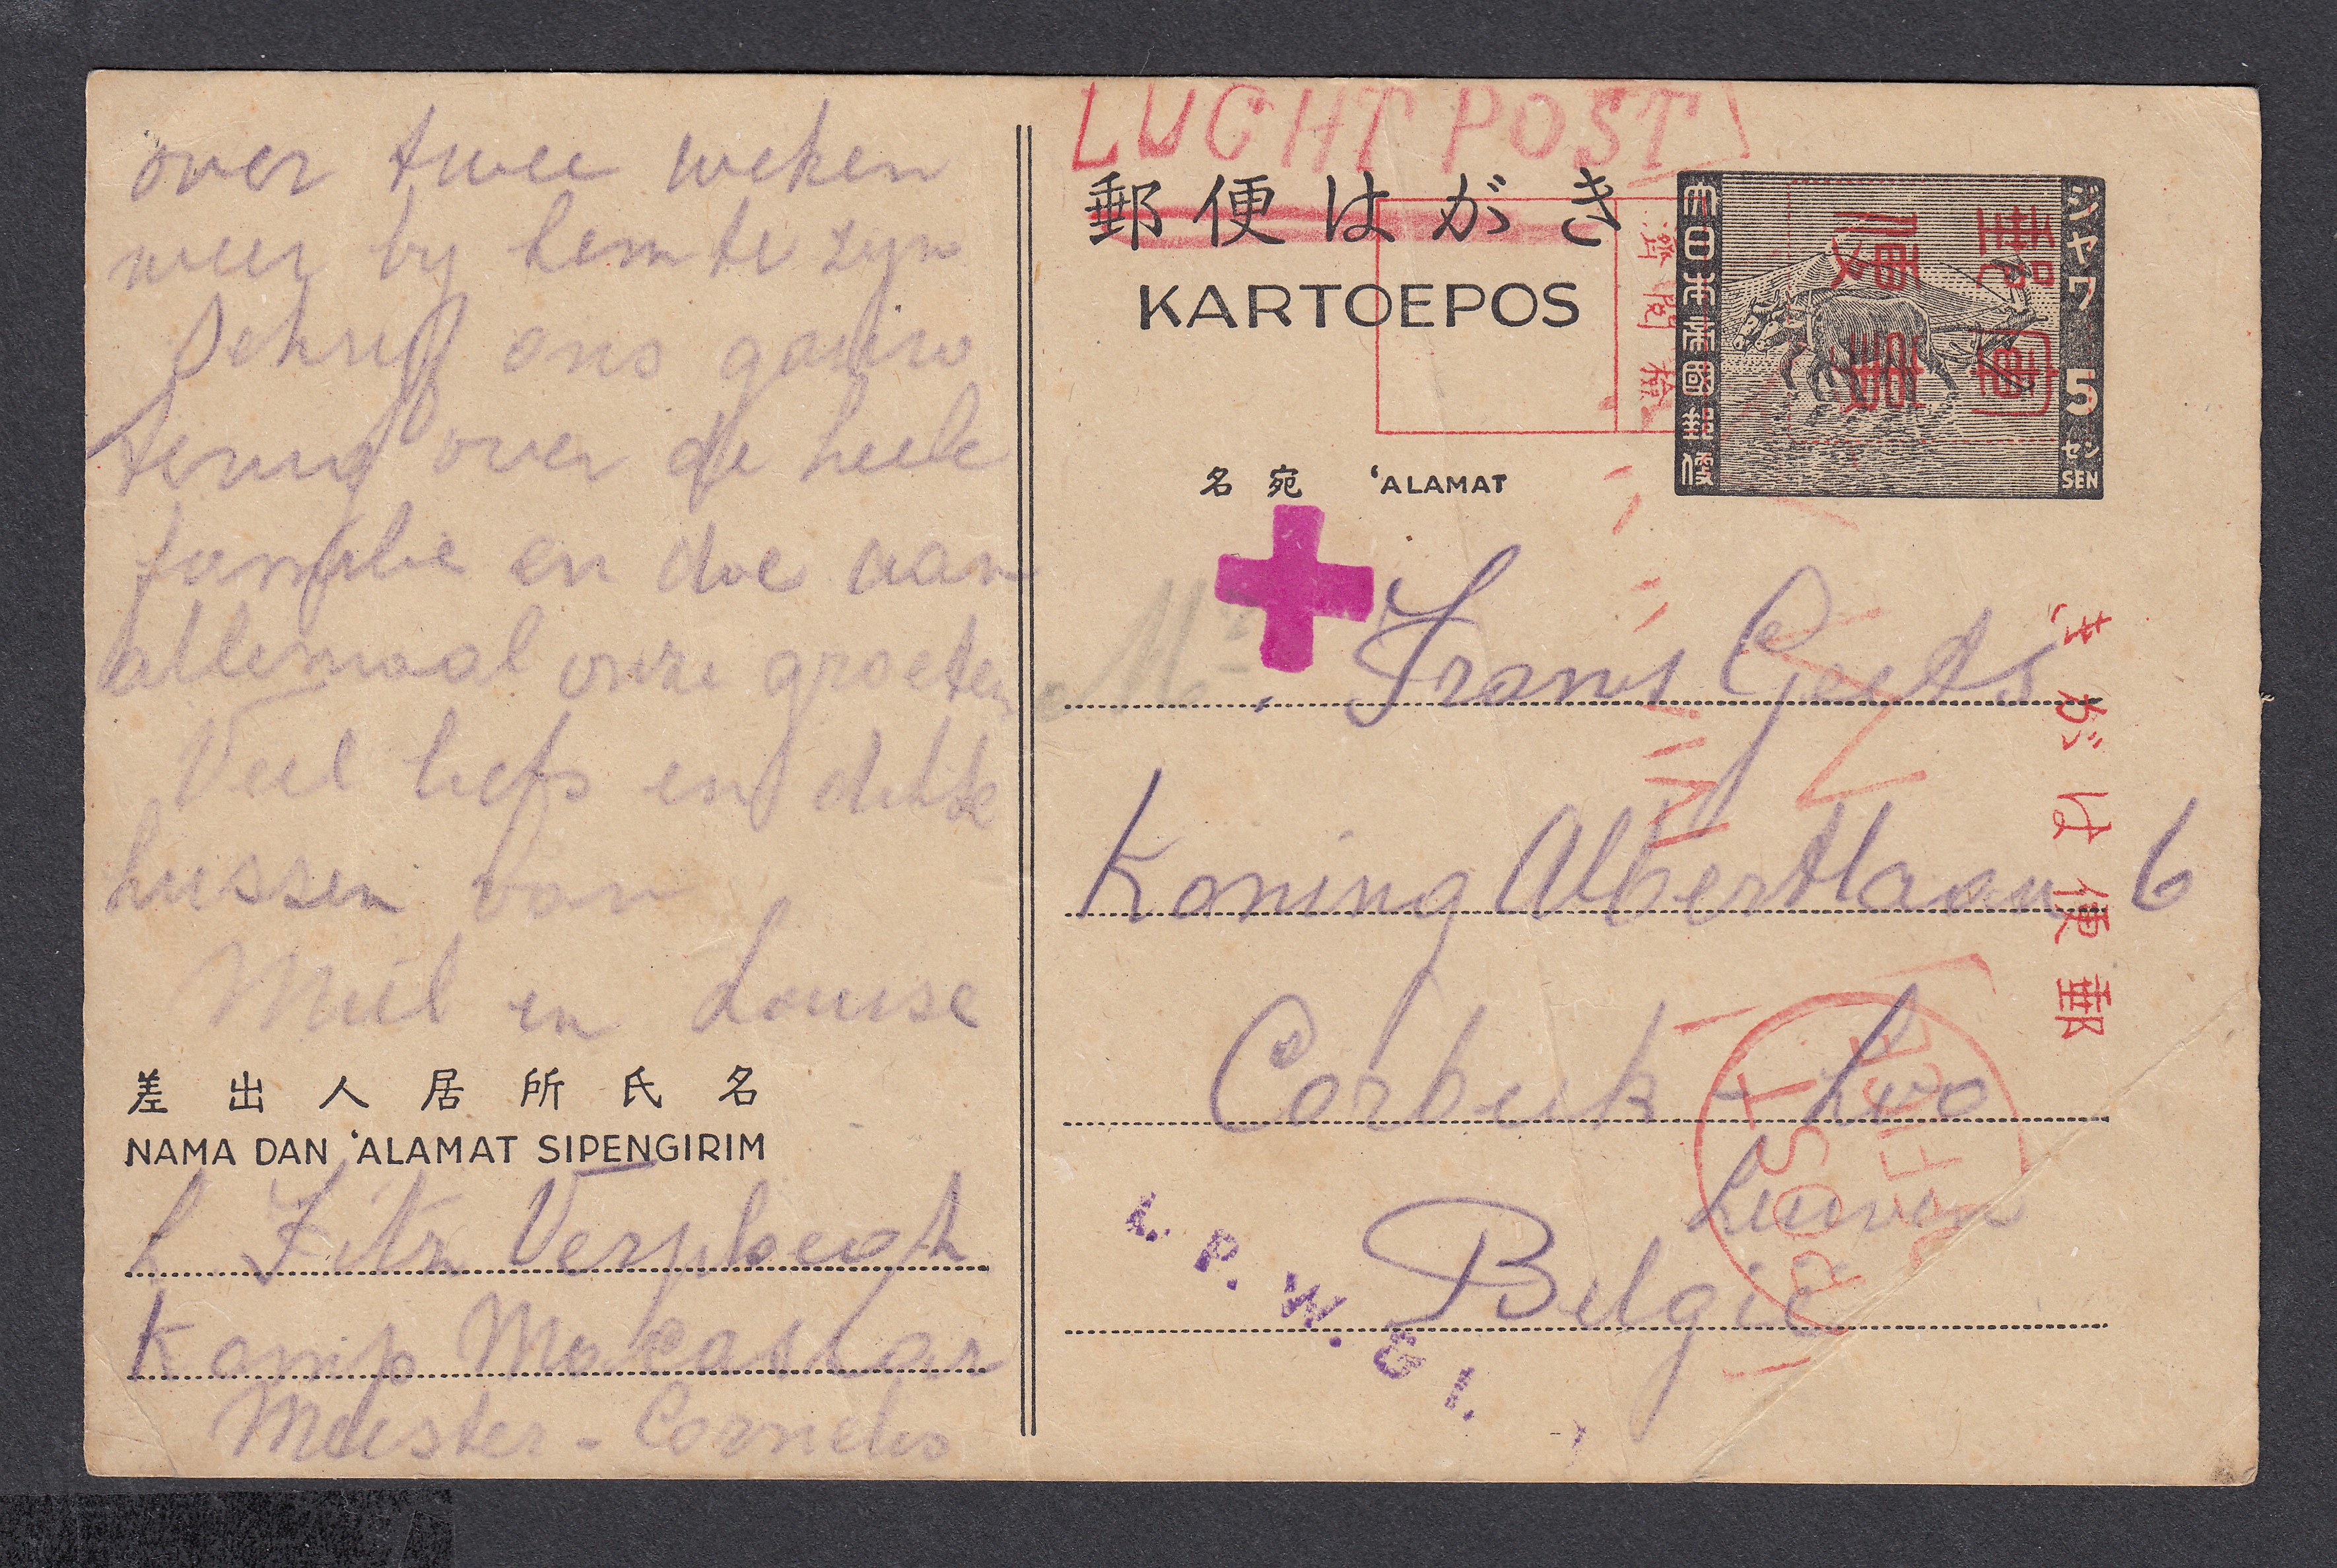 over twee weken
weer by hem te zyn
Schrijf ons gauw
terug over de heele
familie en doe aan
allemaal onze groeten
Veel liefs en dikke
kussen van
Miel en Louise
差出人居所氏名
NAMA DAN 'ALAMAT SIPENGIRIM
L Fitz Verploegh
Kamp Makassar
Meester - Cornelis
LUCHTPOST
郵便はがき
KARTOEPOS
大日本帝國郵便
ジャワ
5
セン
SEN
濟閲檢
名宛 'ALAMAT
Mr. Frans Geets
Koning Albertlaan 6
Corbeek - Loo
Leuven
België
郵便はがき
POST
L. P. W. & I.